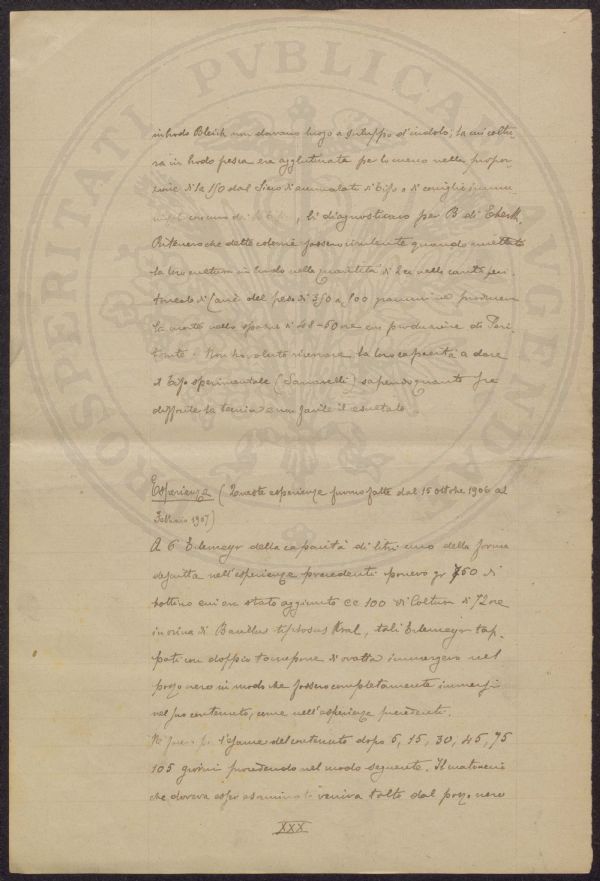 in brodo Bleisch non davano luogo a sviluppo d'indolo; la cui coltu
ra in brodo pesca era agglutinata per lo meno nella propor
zione di 1 a 150 dal Siero di ammalati di tifo o di coniglio immu
, li diagnosticavo per B di Eberth.
Ritenevo che dette colonie fossero virulente quando
la loro cultura in brodo nella quantità di 2 cc nella cavità peri
toneale di Cavie del peso di 350 a 400 grammi ne producevano
la morte nello spazio di 48-60 ore con produzione di Peri
tonite. Non ho voluto ricercare la loro capacità a dare
il tifo sperimentale (Sanarelli) sapendo quanto sia
difficile la tecnica e non facile il risultato.
Esperienze (Queste esperienze furono fatte dal 15 ottobre 1906 al
Febbraio 1907)
A 6 Erlemeyr della capacità di litri uno della forma
descritta nell'esperienze precedenti ponevo gr 750 di
bottino cui era stato aggiunto cc 100 di Coltura di 72 ore
in orina di Bacillus typhosus Kral, tali Erlemeyr tap-
pati con doppio tampone di ovatta immergevo nel
pozzo nero in modo che fossero completamente immersi
nel suo contenuto, come nell'esperienze precedenti.
l'esame del contenuto dopo 5, 15, 30, 45, 75
105 giorni procedendo nel modo seguente. Il matraccio
che doveva esser esaminato veniva tolto dal pozzo nero
XXX
PROSPERITATI PVBLICAE AVGENDAE